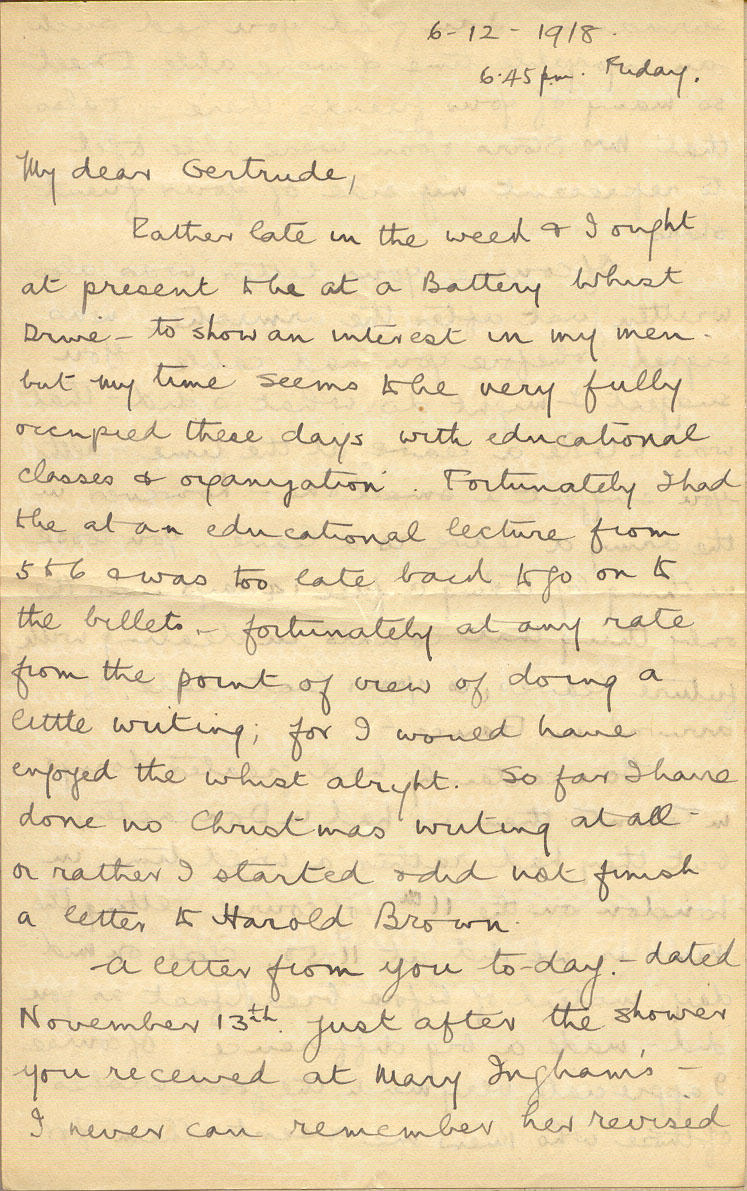 6-12-1918.
6.45pm. Friday.
My dear Gertrude,
Rather late in the week & I ought
at present to be at a Battery Whist
Drive - to show an interest in my men -
but my time seems to be very fully
occupied these days with educational
classes & organization. Fortunately I had
to be at an educational lecture from
5 to 6 & was too late back to go on to
the billets. - fortunately at any rate
from the point of view of doing a
little writing; for I would have
enjoyed the whist alright. So far I have
done no Christmas writing at all -
or rather I started & did not finish
a letter to Harold Brown.
A letter from you to-day. - dated
November 13th. just after the shower
you received at Mary Ingham's -
I never can remember her revised